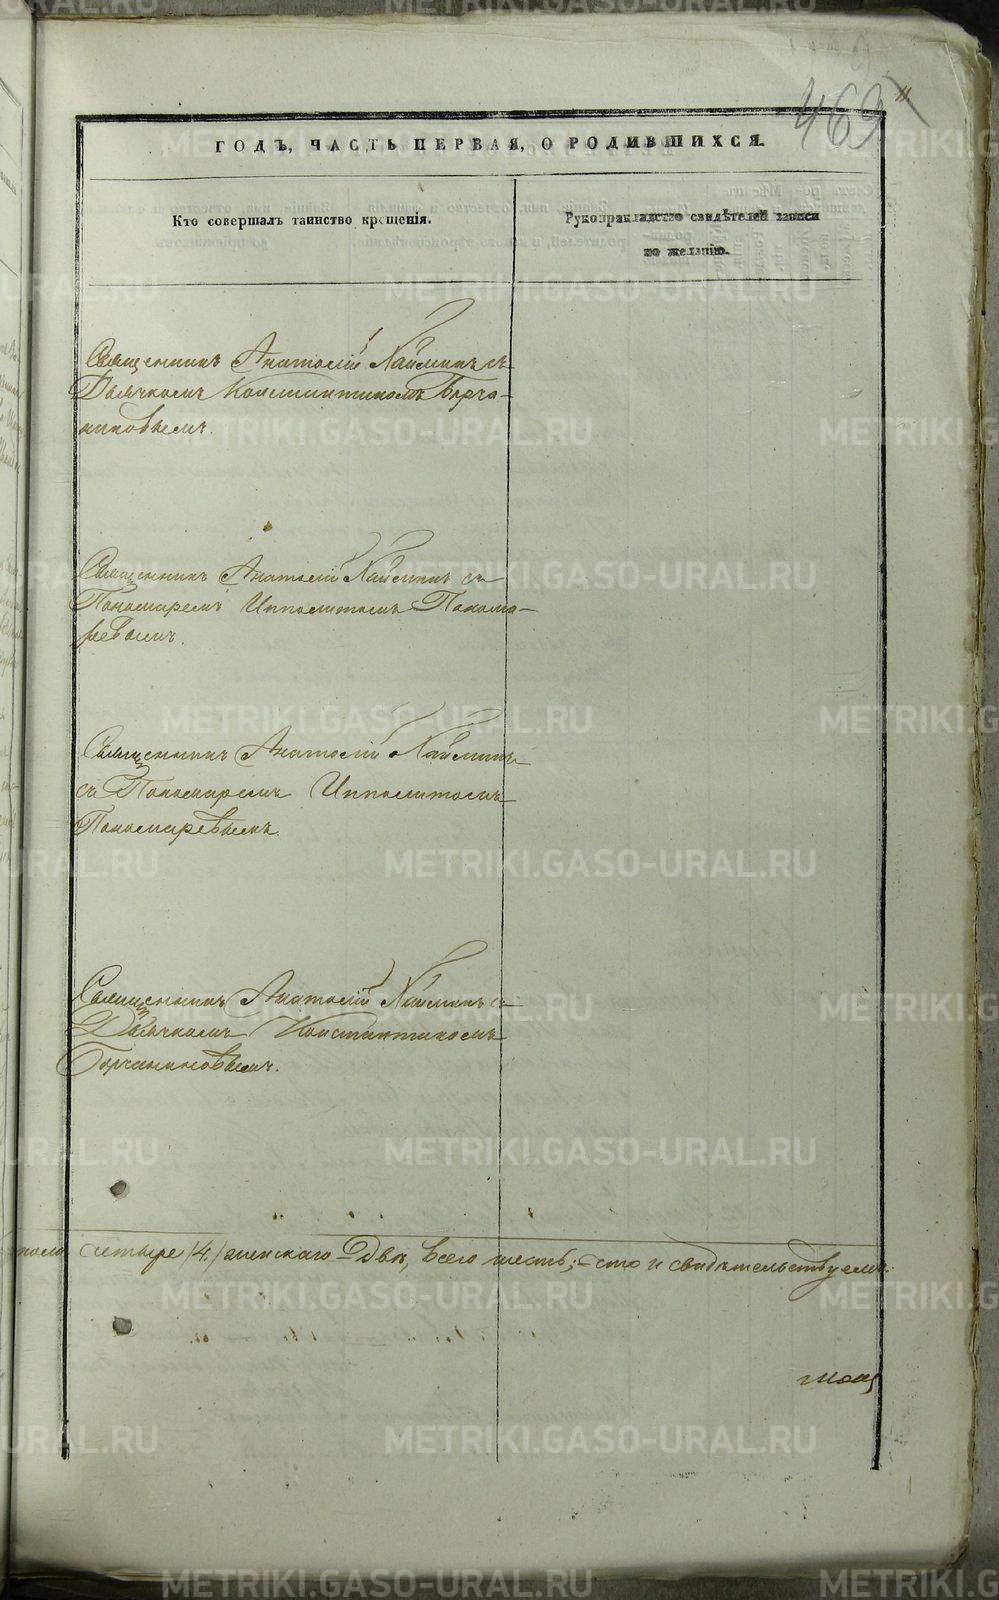 469
ГОДЪ, ЧАСТЬ ПЕРВАЯ, О РОДИВШИХСЯ.
Кто совершалъ таинство крещенія.
Рукоприкладство свидѣтелей записи
по желанію.
Священникъ Анатолій Хаймин съ
Дьячкомъ Константиномъ Бурча-
ниновымъ.
Священникъ Анатолій Хаймин съ
Пономаремъ Ипполитомъ Понома-
ревымъ.
Священникъ Анатолій Хайминъ
съ Пономаремъ Ипполитомъ
Пономаревымъ.
Священникъ Анатолій Хаймин съ
Дьячкомъ Константиномъ
Бурчаниновымъ.
пола четыре /4/ женскаго Два, всего шесть; что и свидѣтельствуемъ:
METRIKI.GASO-URAL.RU